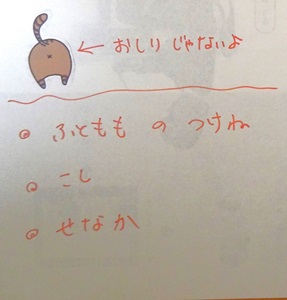 ← おしりじゃないよ
ふとももの つけね
こし
せなか